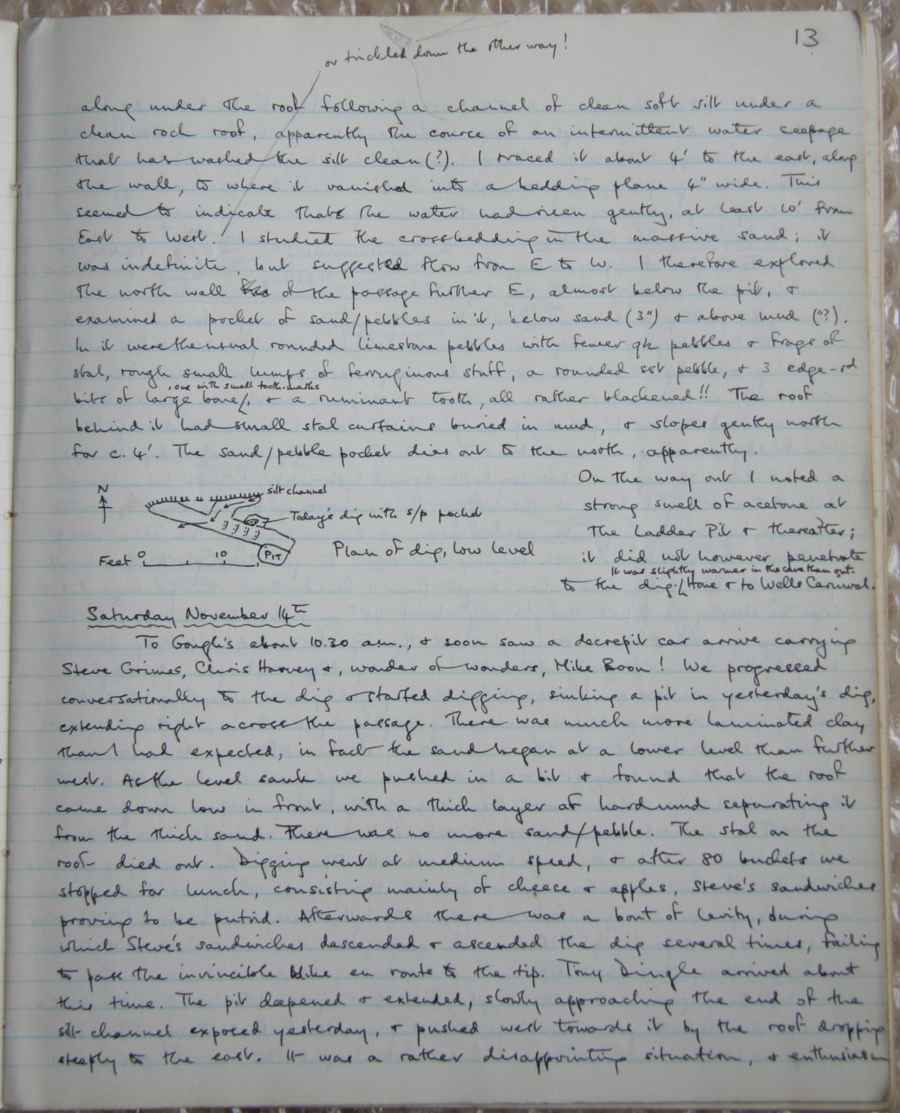 13
or trickled down the other way!
along under the roof following a channel of clean soft silt under a
clean rock roof, apparently the course of an intermittent water seepage
that has washed the silt clean (?). I traced it about 4' to the east, along
the wall, to where it vanished into a bedding plane 4" wide. This
seemed to indicate that the water had risen gently, at least 10' from
East to West. I studied the crossbedding in the massive sand; it
was indefinite, but suggested flow from E to W. I therefore explored
the north wall of the passage further E, almost below the pit, &
examined a pocket of sand/pebbles in it, below sand (3") & above mud (?).
In it were the usual rounded limestone pebbles with fewer qtz pebbles & frags of
stal, rough small lumps of ferruginous stuff, a rounded sst pebble, & 3 edge-rd
, one with small tooth-marks
bits of large bone, & a ruminant tooth, all rather blackened!! The roof
behind it had small stal curtains buried in mud, & slopes gently north
for c. 4'. The sand/pebble pocket dies out to the north, apparently.
N
silt channel
Today's dig with s/p pocket
Feet 0 10
PIT
Plan of dig, low level
On the way out I noted a
strong smell of acetone at
the Ladder Pit & thereafter;
it did not however penetrate
It was slightly warmer in the cave than out.
to the dig. Home & to Wells Carnival.
Saturday November 14th
To Gough's about 10.30 am., & soon saw a decrepit car arrive carrying
Steve Grimes, Chris Harvey &, wonder of wonders, Mike Boon! We progressed
conversationally to the dig & started digging, sinking a pit in yesterday's dig,
extending right across the passage. There was much more laminated clay
than I had expected, in fact the sand began at a lower level than further
west. As the level sank we pushed in a bit & found that the roof
came down low in front, with a thick layer of hard mud separating it
from the thick sand. There was no more sand/pebble. The stal on the
roof died out. Digging went at medium speed, & after 80 buckets we
stopped for lunch, consisting mainly of cheese & apples, Steve's sandwiches
proving to be putrid. Afterwards there was a bout of levity, during
which Steve's sandwiches descended & ascended the dig several times, failing
to pass the invincible Mike en route to the tip. Tony Dingle arrived about
this time. The pit deepened & extended, slowly approaching the end of the
silt channel exposed yesterday, & pushed west towards it by the roof dropping
steeply to the east. It was a rather disappointing situation, & enthusiasm